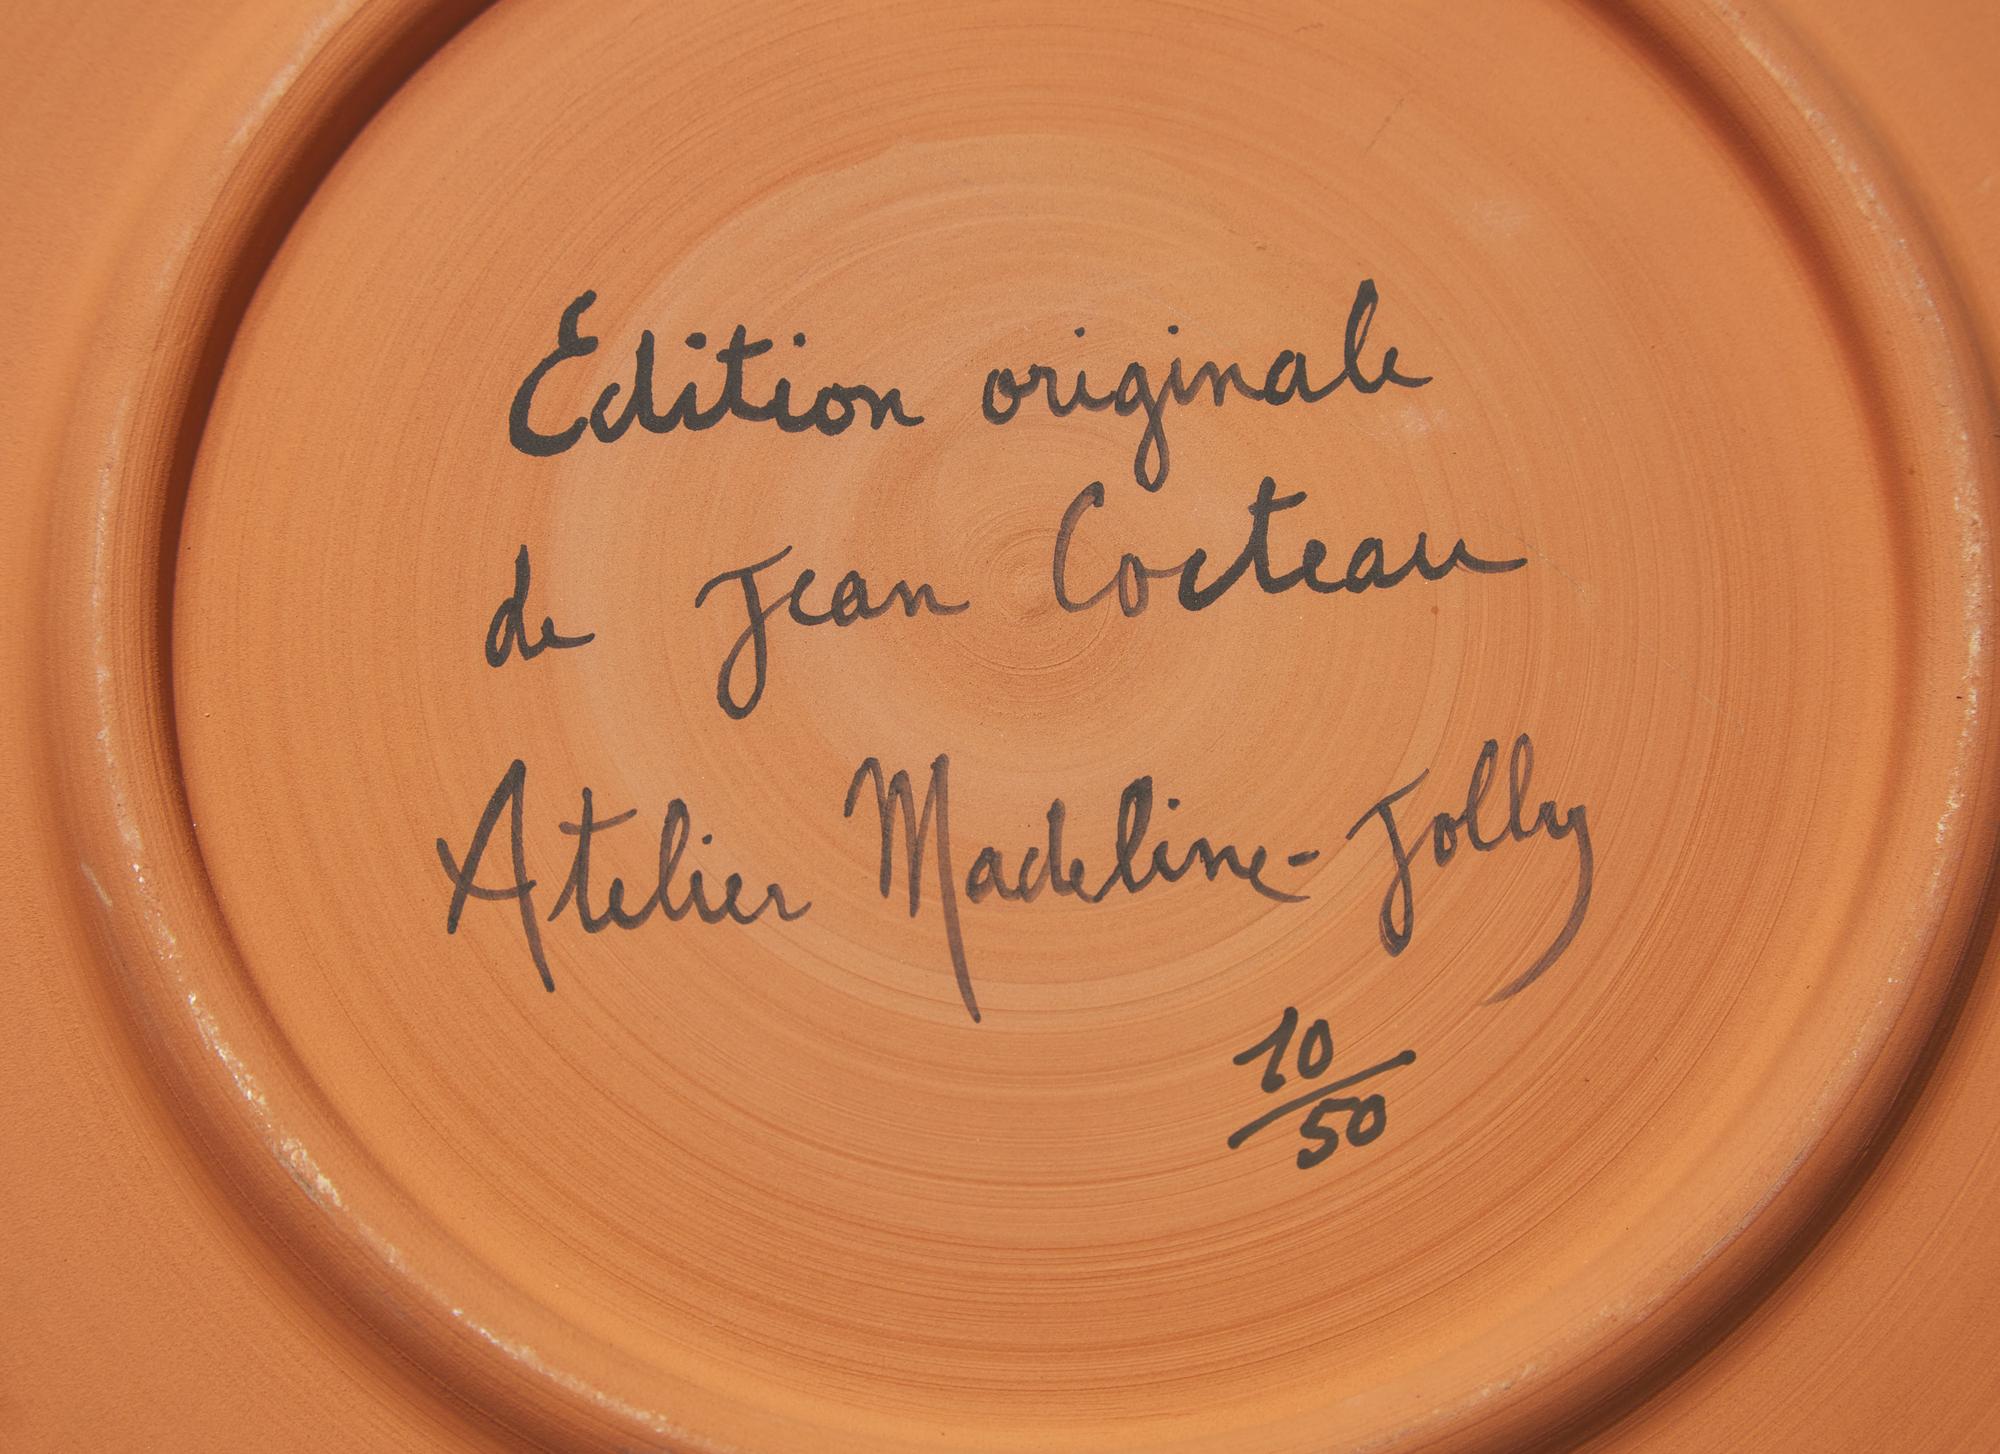 Edition originale
de Jean Cocteau
Atelier Madeline-Jolly
10
50